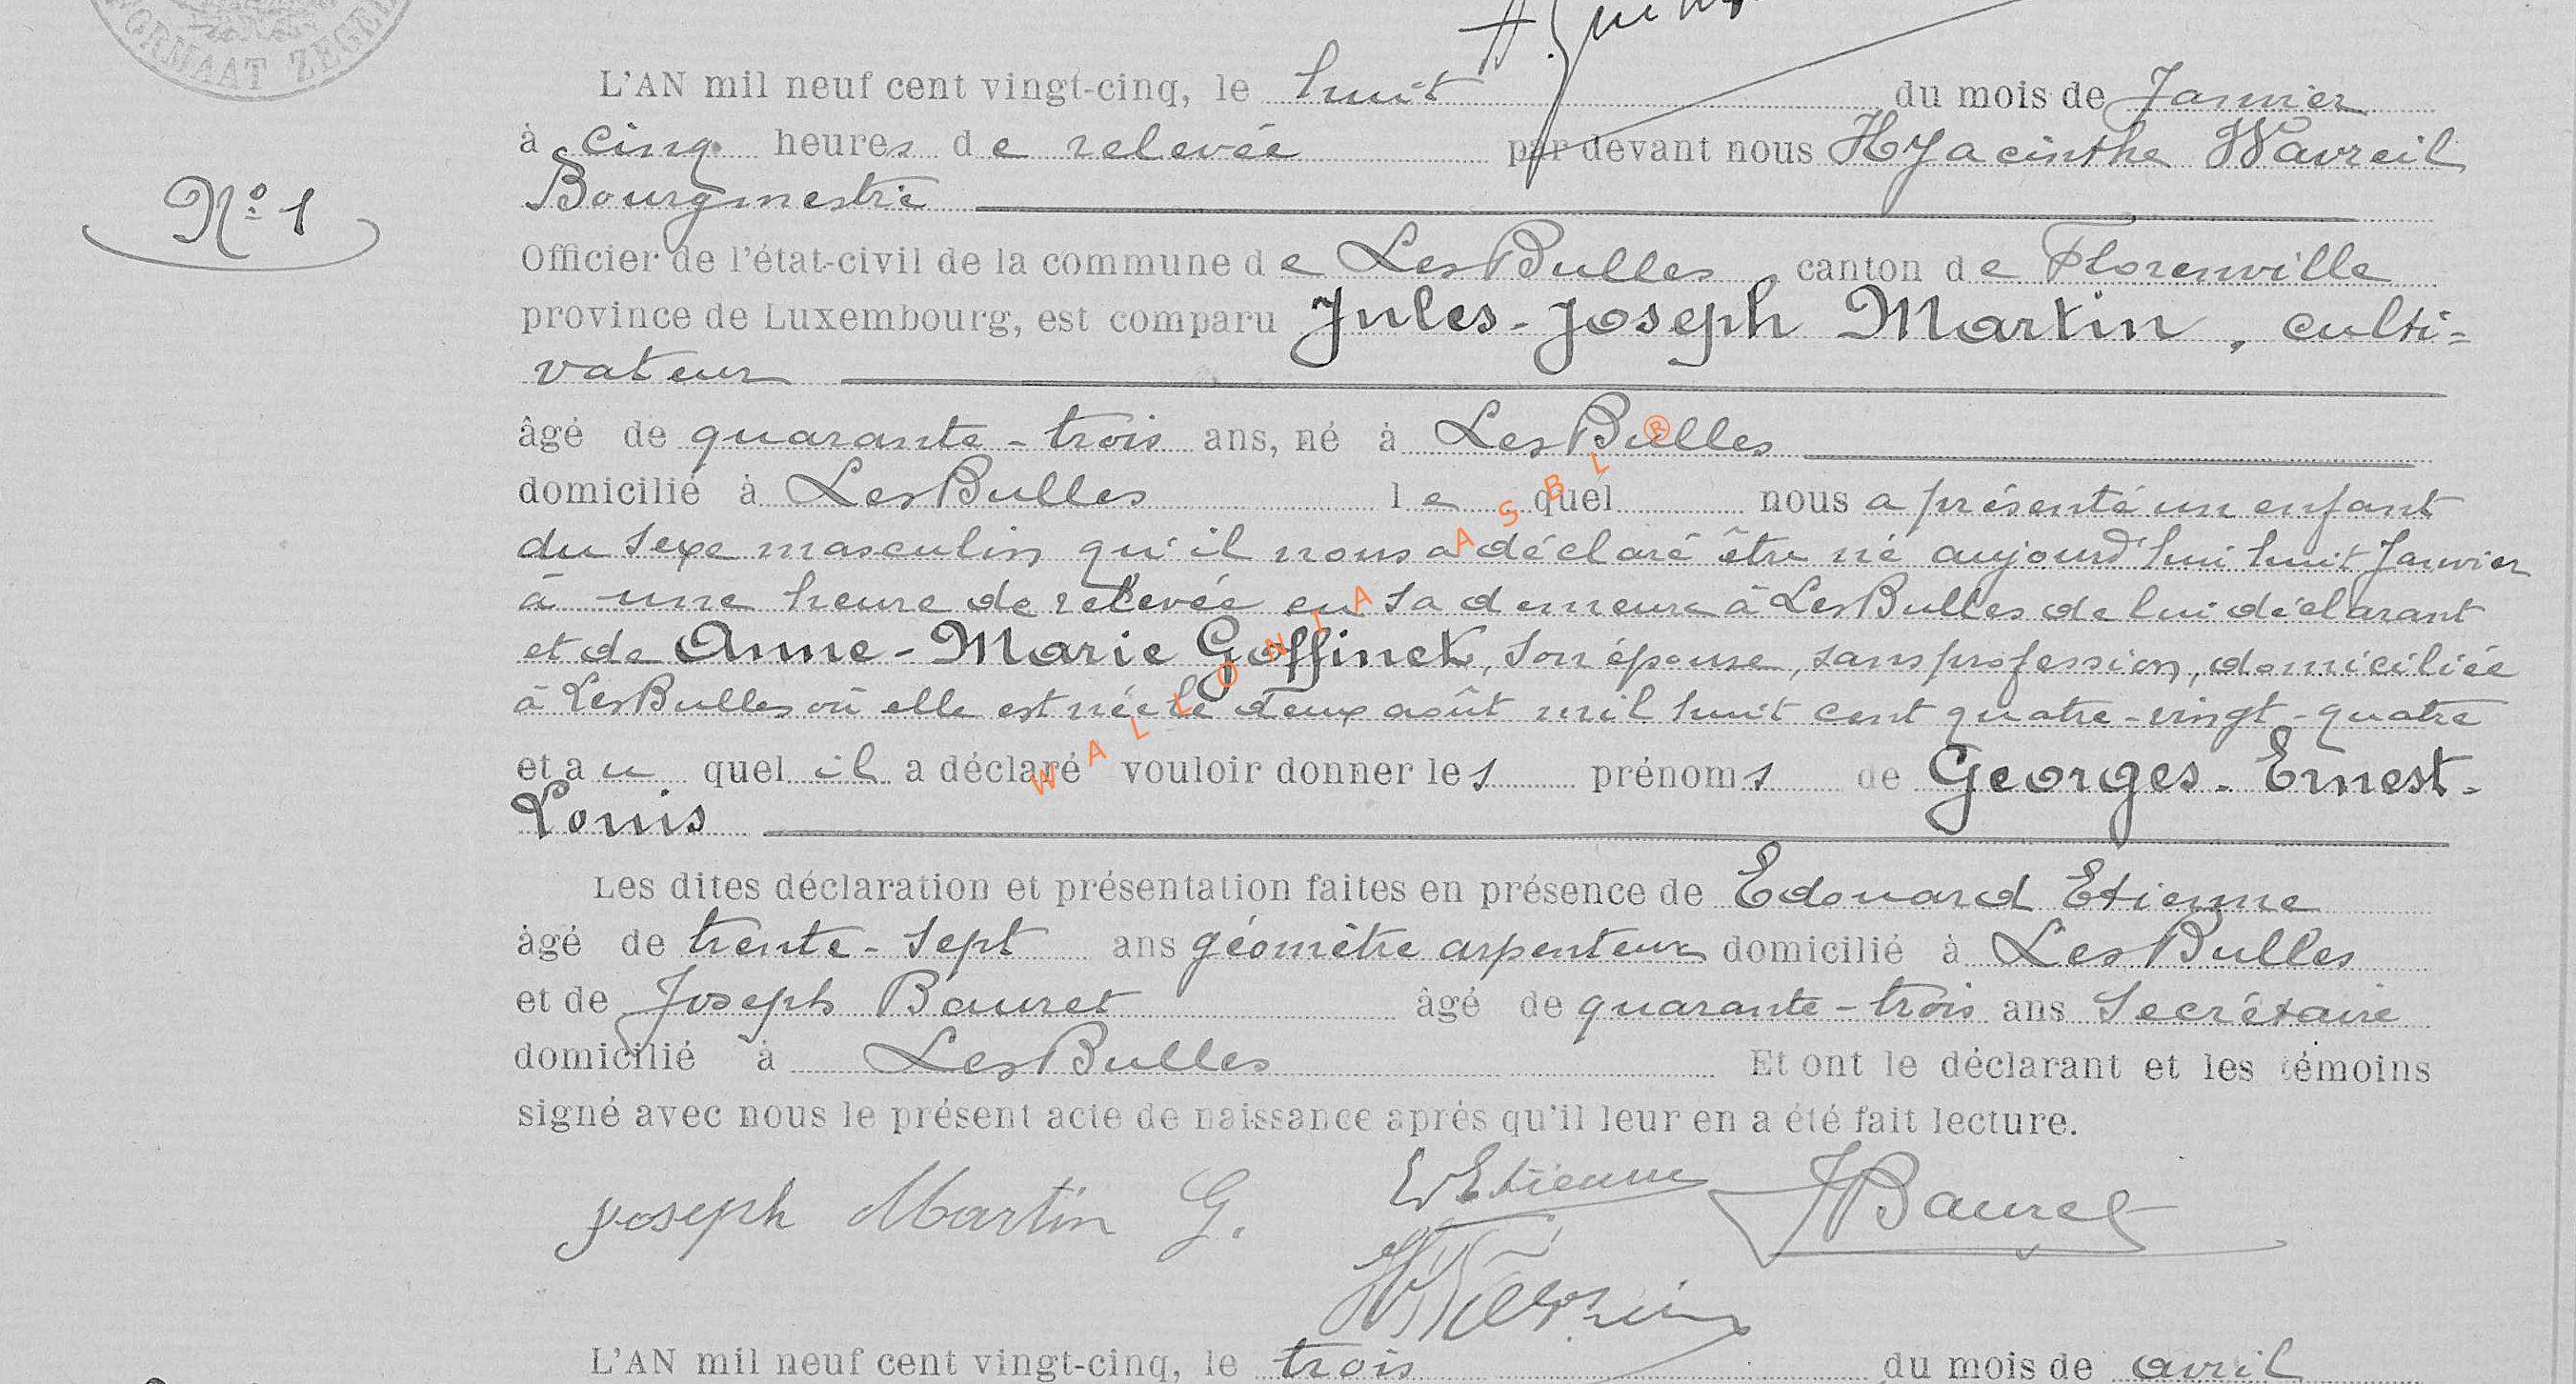 FORMAAT ZEGEL
L'AN mil neuf cent vingt-cinq, le huit du mois de Janvier
à cinq heures de relevée par devant nous Hyacinthe Wavreil
Bourgmestre
N° 1
Officier de l'état-civil de la commune de Les Bulles, canton de Florenville
province de Luxembourg, est comparu Jules-Joseph Martin, culti=
vateur
âgé de quarante-trois ans, né à Les Bulles
domicilié à Les Bulles lequel nous a présenté un enfant
du sexe masculin qu'il nous a déclaré être né aujourd'hui huit Janvier
à une heure de relevée en sa demeure à Les Bulles de lui déclarant
et de Anne-Marie Goffinet, son épouse, sans profession, domiciliée
à Les Bulles où elle est née le deux août mil huit cent quatre-vingt-quatre
et au quel il a déclaré vouloir donner les prénoms de Georges-Ernest-
Louis
WALLONIA ASBL ®
Les dites déclaration et présentation faites en présence de Edouard Etienne
âgé de trente-sept ans géomètre arpenteur domicilié à Les Bulles
et de Joseph Bauret âgé de quarante-trois ans Secrétaire
domicilié à Les Bulles Et ont le déclarant et les témoins
signé avec nous le présent acte de naissance après qu'il leur en a été fait lecture.
Joseph Martin G. EdEtienne JBauret
L'AN mil neuf cent vingt-cinq, le trois du mois de avril